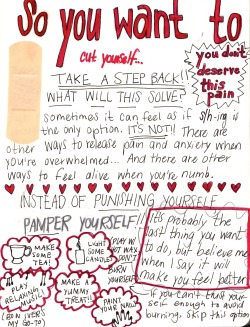 So you want to
cut yourself...
you don't
deserve
this
pain
TAKE A STEP BACK!!
WHAT WILL THIS SOLVE?
Sometimes it can feel as if S/h-ing is
the only option. IT'S NOT!! There are
other ways to release pain and anxiety when
you're overwhelmed... And there are other
ways to feel alive when you're numb.
INSTEAD OF PUNISHING YOURSELF
PAMPER YOURSELF!!
MAKE
SOME
TEA!
LIGHT
SOME
CANDLES!
PLAY W/
HOT WAX.
DON'T
BURN
YOURSELF!
PLAY
RELAXING
MUSIC!
(BON IVER'S
MY GO-TO)
MAKE A
YUMMY
TREAT!!
PAINT
YOUR
It's probably the
last thing you want
to do, but believe me
when I say it will
make you feel better.
if you can't trust your
self enough to avoid
burning, skip this option